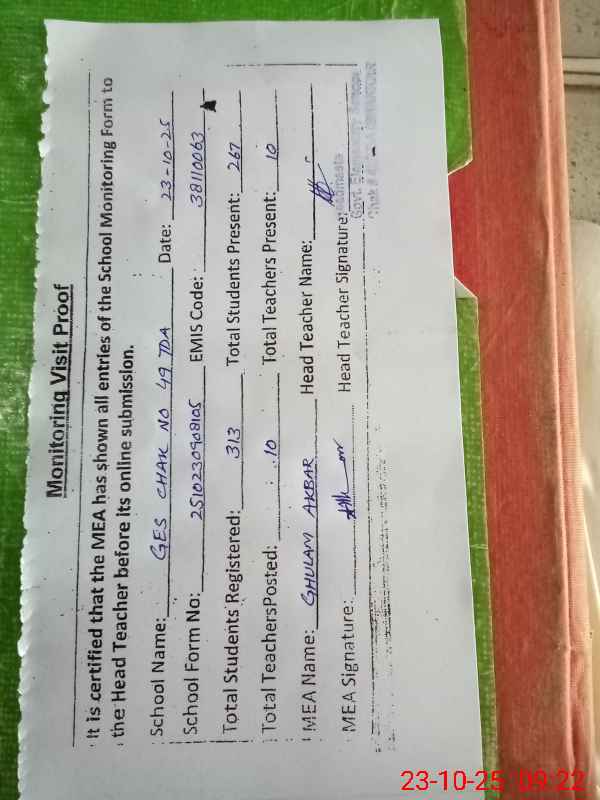 Monitoring Visit Proof
It is certified that the MEA has shown all entries of the School Monitoring Form to
the Head Teacher before its online submission.
School Name: GES CHAK NO 49 TDA Date: 23-10-25
School Form No: 2510230908105 EMIS Code: 38110063
Total Students Registered: 313 Total Students Present: 267
Total TeachersPosted: 10 Total Teachers Present: 10
MEA Name: GHULAM AKBAR Head Teacher Name:
MEA Signature: Head Teacher Signature:
Govt. Elementary
Chak #
23-10-25 09:22